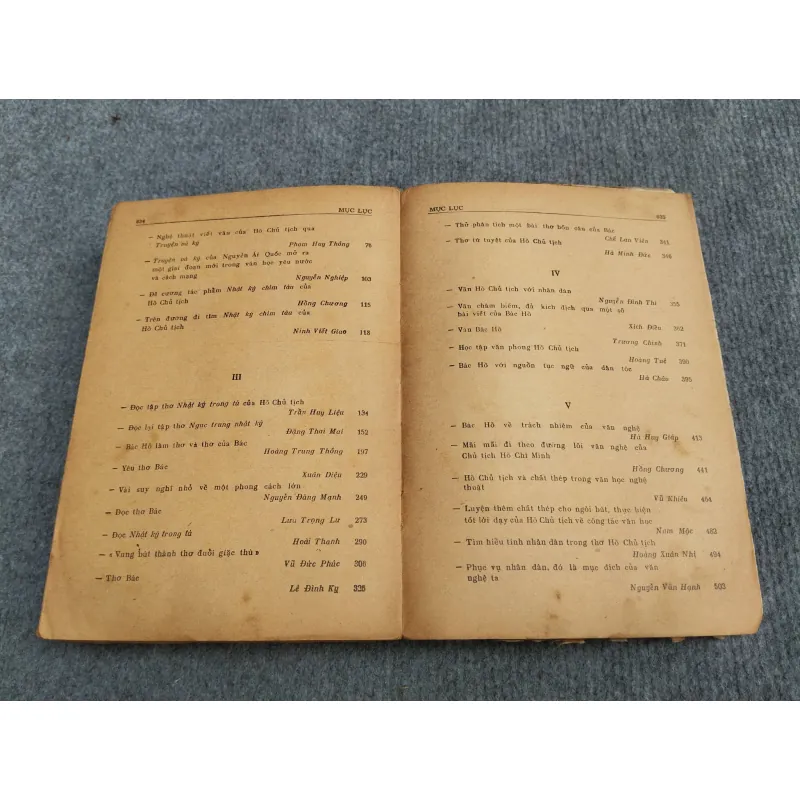 MỤC LỤC
— Nghệ thuật viết văn của Hồ Chủ tịch qua
Truyện và ký Phạm Huy Thông 76
— Truyện và ký của Nguyễn Ái Quốc mở ra
một giai đoạn mới trong văn học yêu nước
và cách mạng Nguyễn Nghiệp 103
— Đề cương tác phẩm Nhật ký chìm tàu của
Hồ Chủ tịch Hồng Chương 115
— Trên đường đi tìm Nhật ký chìm tàu của
Hồ Chủ tịch Ninh Viết Giao 118
III
— Đọc tập thơ Nhật ký trong tù của Hồ Chủ tịch
Trần Huy Liệu 134
— Đọc lại tập thơ Ngục trung nhật ký
Đặng Thai Mai 152
— Bác Hồ làm thơ và thơ của Bác
Hoàng Trung Thông 197
— Yêu thơ Bác
Xuân Diệu 229
— Vài suy nghĩ nhỏ về một phong cách lớn
Nguyễn Đăng Mạnh 249
— Đọc thơ Bác
Lưu Trọng Lư 273
— Đọc Nhật ký trong tù
Hoài Thanh 290
— « Vung bút thành thơ đuổi giặc thù »
Vũ Đức Phúc 308
— Thơ Bác
Lê Đình Kỵ 335
MỤC LỤC
— Thử phân tích một bài thơ bốn câu của Bác
Chế Lan Viên 341
— Thơ tứ tuyệt của Hồ Chủ tịch
Hà Minh Đức 346
IV
— Văn Hồ Chủ tịch với nhân dân
Nguyễn Đình Thi 355
— Văn châm biếm, đả kích địch qua một số
bài viết của Bác Hồ
Xích Điểu 362
— Văn Bác Hồ
Trường Chinh 371
— Học tập văn phong Hồ Chủ tịch
Hoàng Tuệ 390
— Bác Hồ với nguồn tục ngữ của dân tộc
Hà Châu 395
V
— Bác Hồ về trách nhiệm của văn nghệ
Hà Huy Giáp 413
— Mãi mãi đi theo đường lối văn nghệ của
Chủ tịch Hồ Chí Minh
Hồng Chương 441
— Hồ Chủ tịch và chất thép trong văn học nghệ
thuật
Vũ Khiêu 464
— Luyện thêm chất thép cho ngòi bút, thực hiện
tốt lời dạy của Hồ Chủ tịch về công tác văn học
Nam Mộc 482
— Tìm hiểu tính nhân dân trong thơ Hồ Chủ tịch
Hoàng Xuân Nhị 494
— Phục vụ nhân dân, đó là mục đích của văn
nghệ ta
Nguyễn Văn Hạnh 503